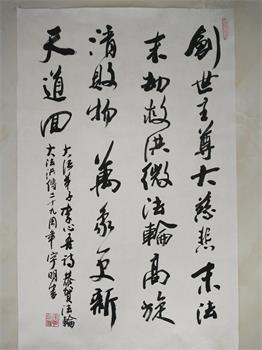 創世主尊大慈悲末法
末劫救洪微法輪高旋
清敗物萬象更新
天道回
大法弟子李心詩恭賀法輪
大法洪傳二十九周年宇明書